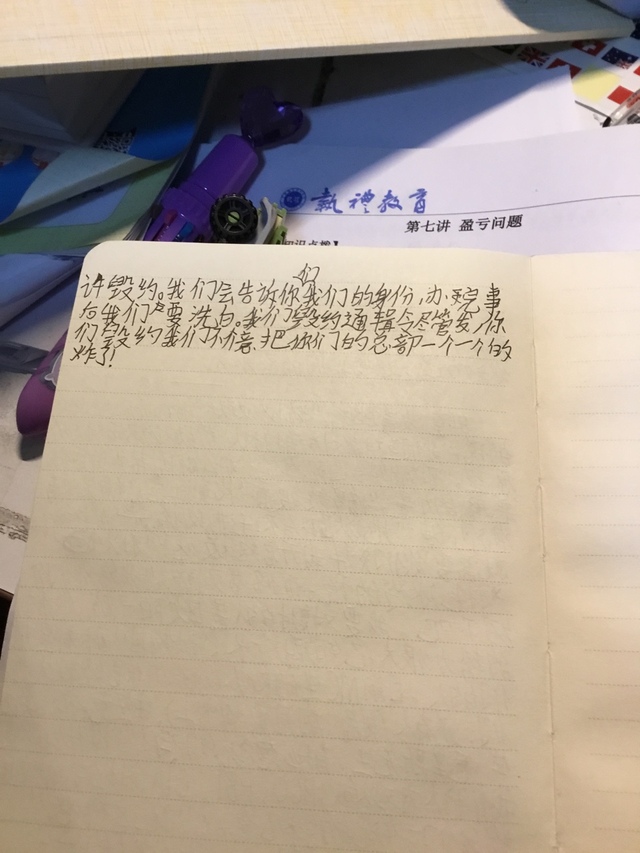 執禮教育
第七讲 盈亏问题
们
许毁约。我们会告诉你我们的身份,办完事
后我们要洗白。我们毁约通辑令尽管发,你
们毁约我们不介意把你们的总部一个一个的
炸了!